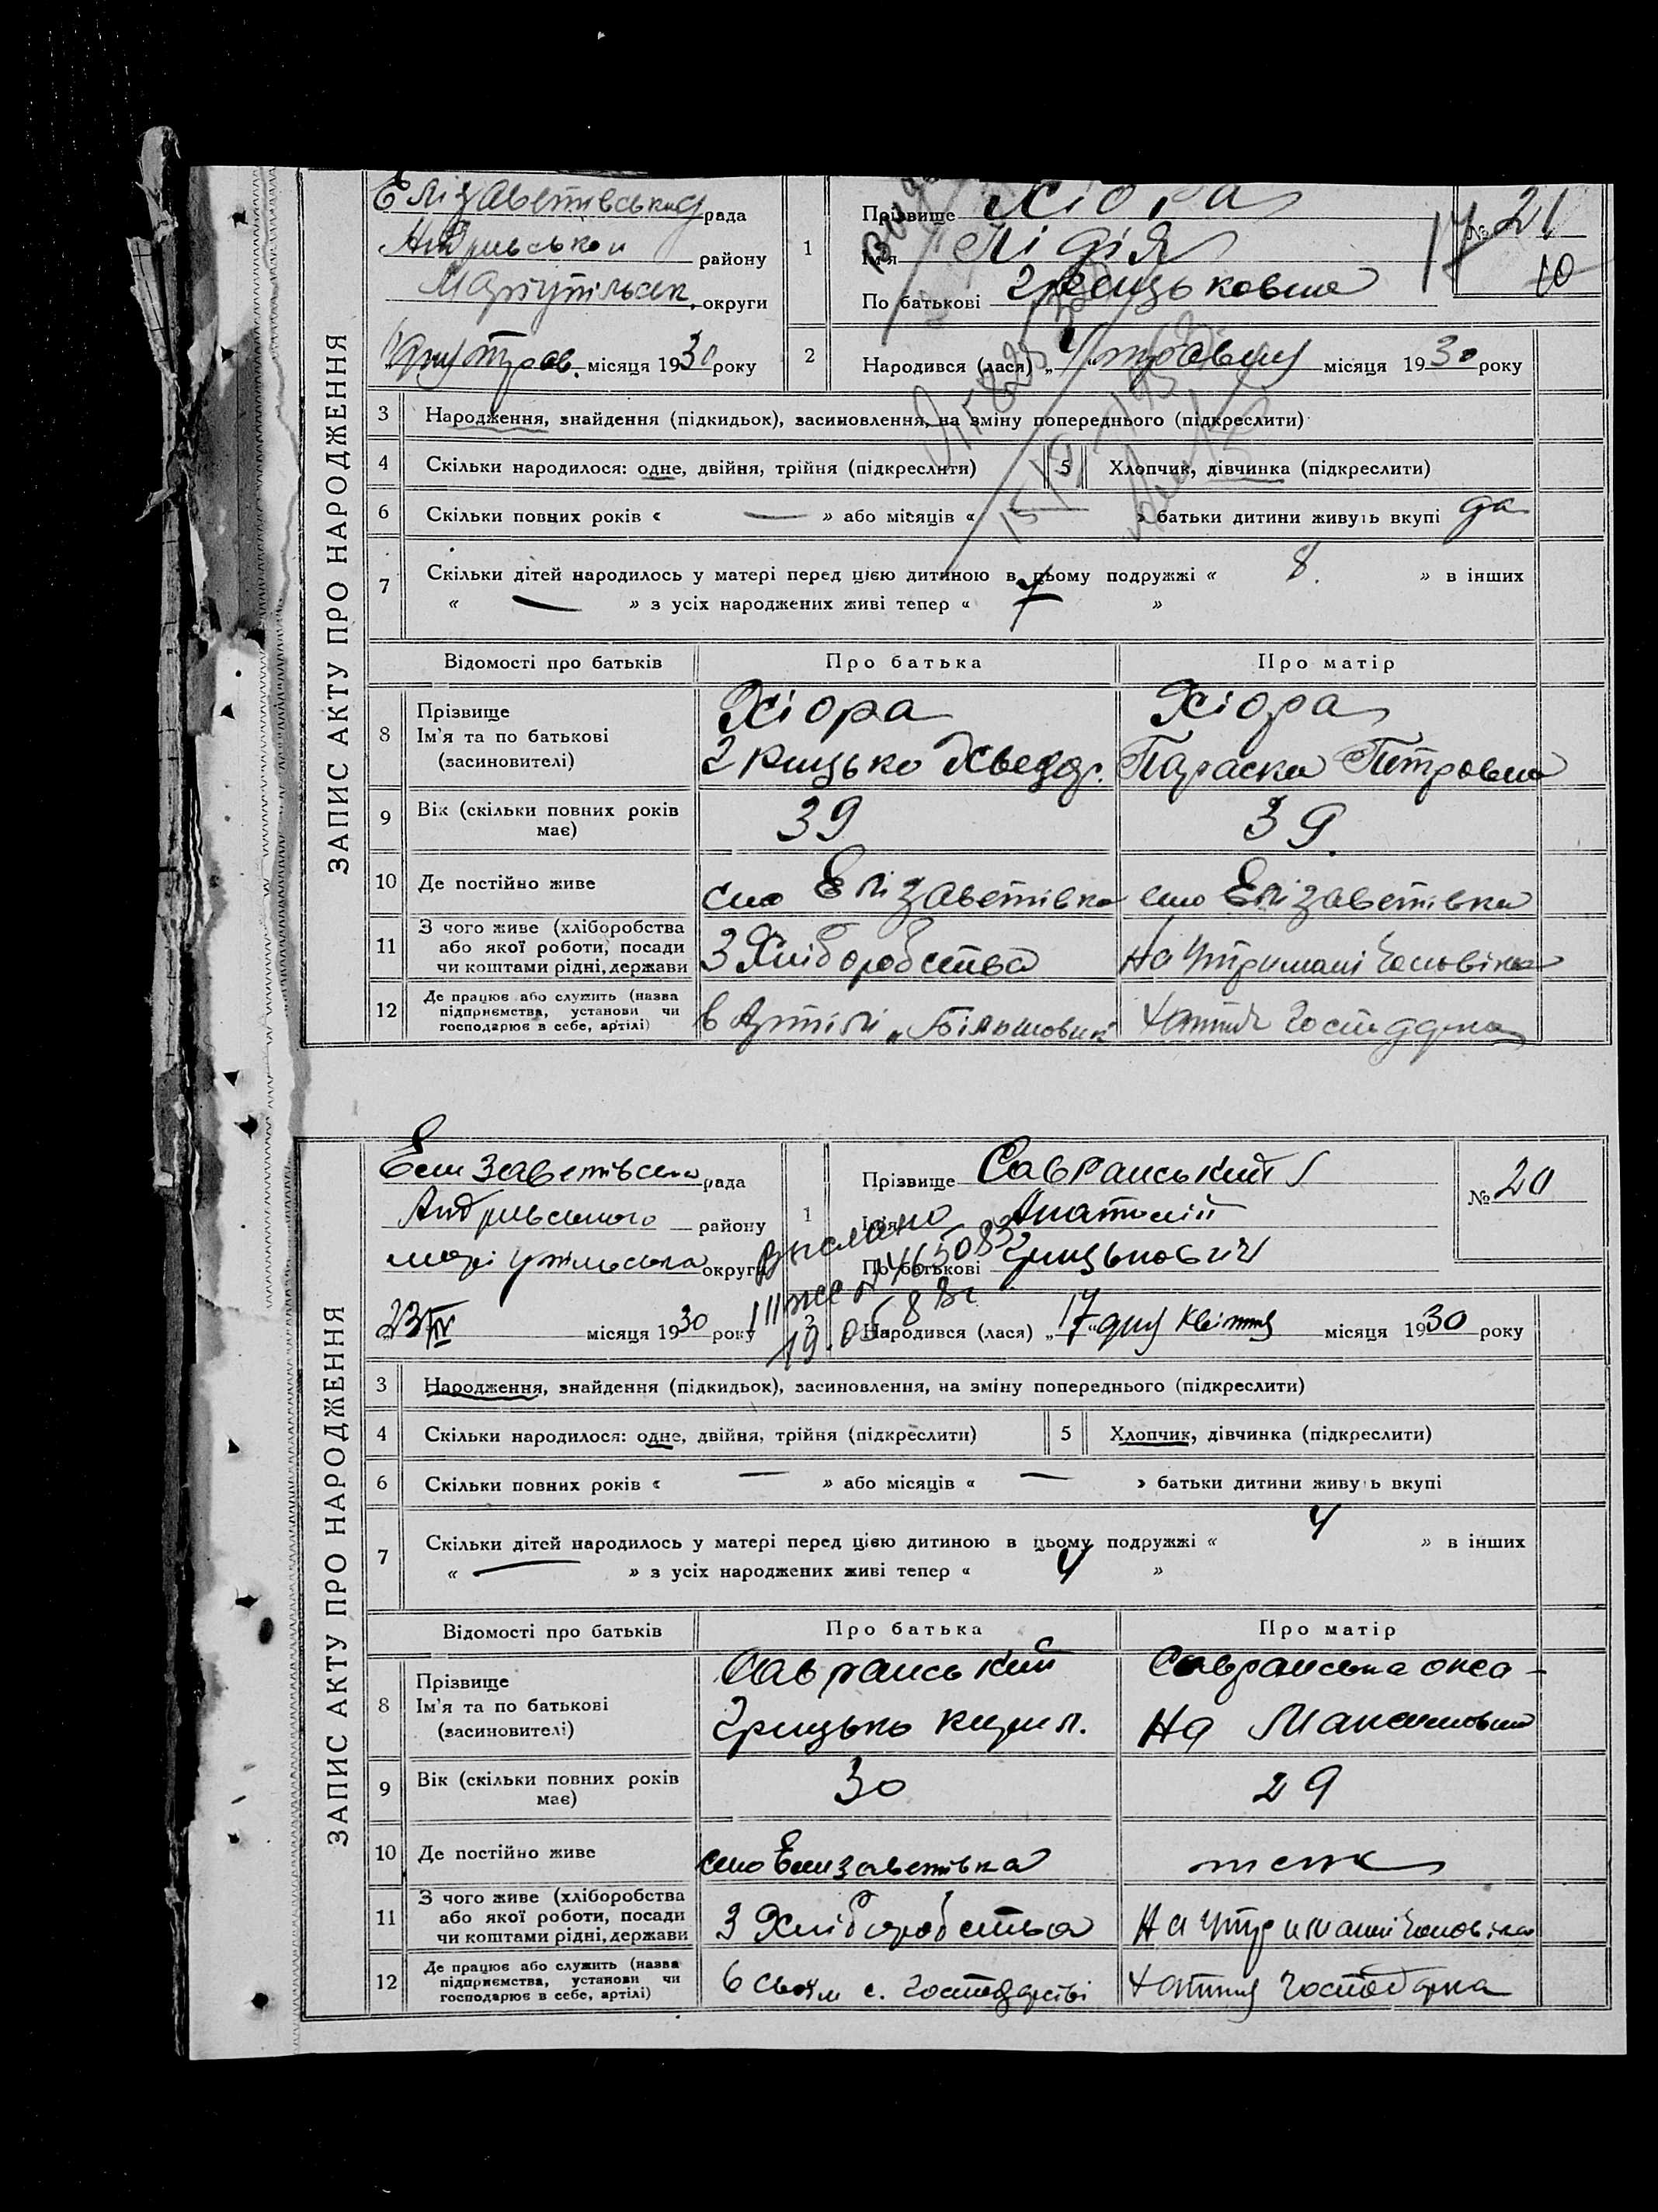 ЗАПИС АКТУ ПРО НАРОДЖЕННЯ
Елізаветівська рада
району
Маріупільськ. округи
трав. місяця 1930 року
№ 21
10
1 Прізвище Хіора
Ім'я Лідія
По батькові Грицьковна
2 Народився (лася) „4“ травня місяця 1930 року
3 Народження, знайдення (підкидьок), засиновлення, на зміну попереднього (підкреслити)
4 Скільки народилося: одне, двійня, трійня (підкреслити) 5 Хлопчик, дівчинка (підкреслити)
6 Скільки повних років « — » або місяців « » батьки дитини живуть вкупі да
7 Скільки дітей народилось у матері перед цією дитиною в цьому подружжі « 8 » в інших
« — » з усіх народжених живі тепер « 7 »
Відомості про батьків Про батька Про матір
8 Прізвище Хіора Хіора
Ім'я та по батькові
(засиновителі) Грицько Хведор. Параска Петровна
9 Вік (скільки повних років має) 39 39
10 Де постійно живе село Елізаветівка село Елізаветівка
11 З чого живе (хліборобства
або якої роботи, посади З Хліборобства На утримані Чоловіка
чи коштами рідні, держави
12 Де працює або служить (назва
підприємства, установи чи в Артілі „Більшовик“ Хатня Господарка
господарює в себе, артілі)
ЗАПИС АКТУ ПРО НАРОДЖЕННЯ
Елизаветівська рада
району
округи
23 IV місяця 1930 року
№ 20
1 Прізвище Савранський
Ім'я Анатолій
По батькові Грицькович
2 Народився (лася) „17“ дня квітня місяця 1930 року
3 Народження, знайдення (підкидьок), засиновлення, на зміну попереднього (підкреслити)
4 Скільки народилося: одне, двійня, трійня (підкреслити) 5 Хлопчик, дівчинка (підкреслити)
6 Скільки повних років « — » або місяців « — » батьки дитини живуть вкупі
7 Скільки дітей народилось у матері перед цією дитиною в цьому подружжі « 4 » в інших
« — » з усіх народжених живі тепер « 4 »
Відомості про батьків Про батька Про матір
8 Прізвище Савранський Савранська Окса-
Ім'я та по батькові Грицько Кирил. на Максимовна
(засиновителі)
9 Вік (скільки повних років має) 30 29
10 Де постійно живе село Елизаветівка теж
11 З чого живе (хліборобства
або якої роботи, посади З Хліборобства На утриманні Чоловіка
чи коштами рідні, держави
12 Де працює або служить (назва
підприємства, установи чи В своїм с. господарстві Хатня Господарка
господарює в себе, артілі)